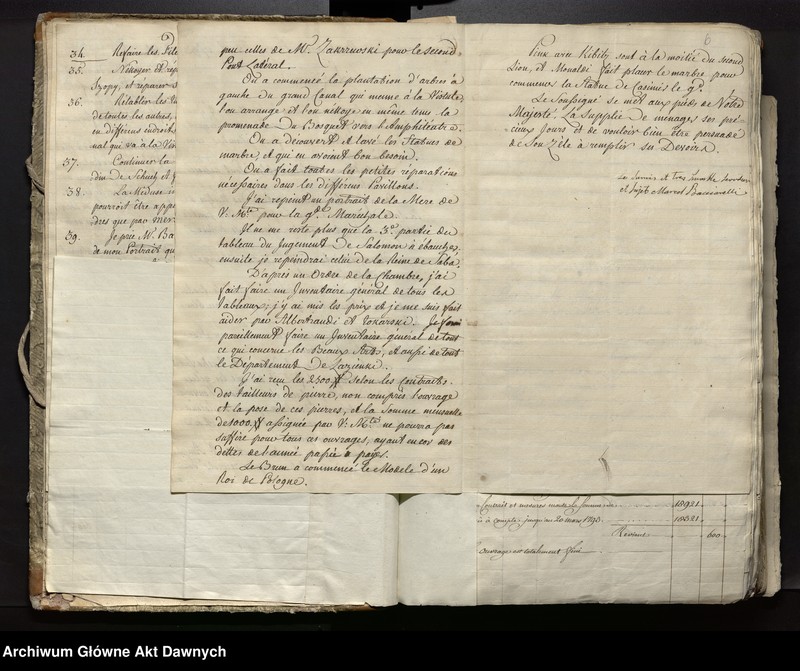 34. Refaire les
35. Nétoyer et
Szopy, et réparer
36. Rétablir les
de toutes les autres,
en différens endroits
nal qui va à la
37. Continuer la
din de Schultz et
38. La Meduse
pourroit être
dres que par
39. Je prie Mr. Ba
de mon Portrait qu
peu celles de Mr. Zakrzewski pour le second
Pont Lateral.
On a commencé la plantation d'arbres à
gauche du grand Canal qui menne à la Vistule,
l'on arrange et l'on nettoye en même tems la
promenade du Bosquet vers l'Amphiteatre.
On a découvert et lavé les Statues de
marbre, et qui en avoient bon besoin.
On a fait toutes les petites réparations
nécessaires dans les différens Pavillons.
J'ai repeint un portrait de la Mere de
V. Mté pour la gde Marechale.
Il ne me reste plus que la 3e partie du
tableau du Jugement de Salomon à ébaucher,
ensuite je repeindrai celui de la Reine de Saba.
D'après un Ordre de la Chambre, j'ai
fait faire un Inventaire général de tous les
tableaux; j'y ai mis les prix et je me suis fait
aider par Albertrandi et Tokarski. Je ferai
pareillement faire un Inventaire général de tout
ce qui concerne les Beaux Arts, et aussi de tout
le Département de Lazienki.
J'ai reçu les 2500 # selon les Contracts
des tailleurs de pierre, non compris l'ouvrage
et la pose de ces pierres, et la somme mensuelle
de 1000 # assignée par V. Mté ne pourra pas
suffire pour tous ces ouvrages, ayant encor des
dettes de l'année passée à payer.
Le Brun a commencé le Modele d'un
Roi de Pologne.
6
Pink avec Kibitz sont à la moitié du second
Lion, et Monaldi fait placer le marbre pour
commencer la Statue de Casimir le gd.
Le Soussigné se met aux pieds de Votre
Majesté. La supplie de menager ses pré
cieux Jours et de vouloir bien être persuadé
de son Zèle à remplir ses Devoirs.
Le Soumis et tres humble Serviteur
et Sujet Marcel Bacciarelli
Contrats et mesures monte la somme 18921
à compte jusqu'au 20 mars 1793 18321
Revenue 600
L'ouvrage est totalement fini
Archiwum Główne Akt Dawnych